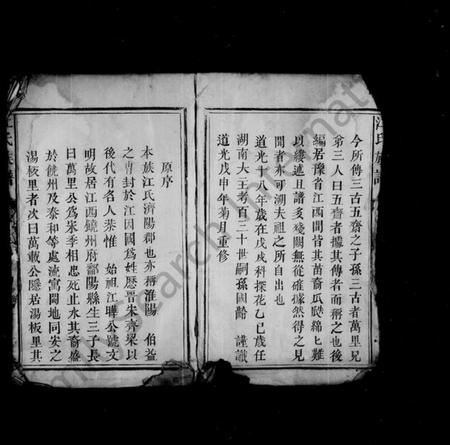 江氏族譜
今所傳三古五齋之子孫三古者萬里兄
弟三人曰五齋者據其傳者而稱之也後
編居豫省江西間皆其苗裔瓜瓞綿匕難
以縷述且譜多殘闕無從確據然得之見
聞者亦可溯夫祖之所自出也
道光十八年歲在戊戌科探花乙巳歲任
湖南大主考百三十世嗣孫國齡 謹識
道光戊申年菊月重修
原序
本族江氏濟陽郡也亦稱淮陽 伯益
之冑封於江因國爲姓歷晋朱齊梁以
後代有名人葉惟 始祖江曄公號文
明故居江西饒州府鄱陽縣生三子長
曰萬里公爲宋季相忠死止水其裔盛
於饒州及泰和等處流寓閩地同安之
湯板里者次曰萬載公隱居湯板里其
氏族譜